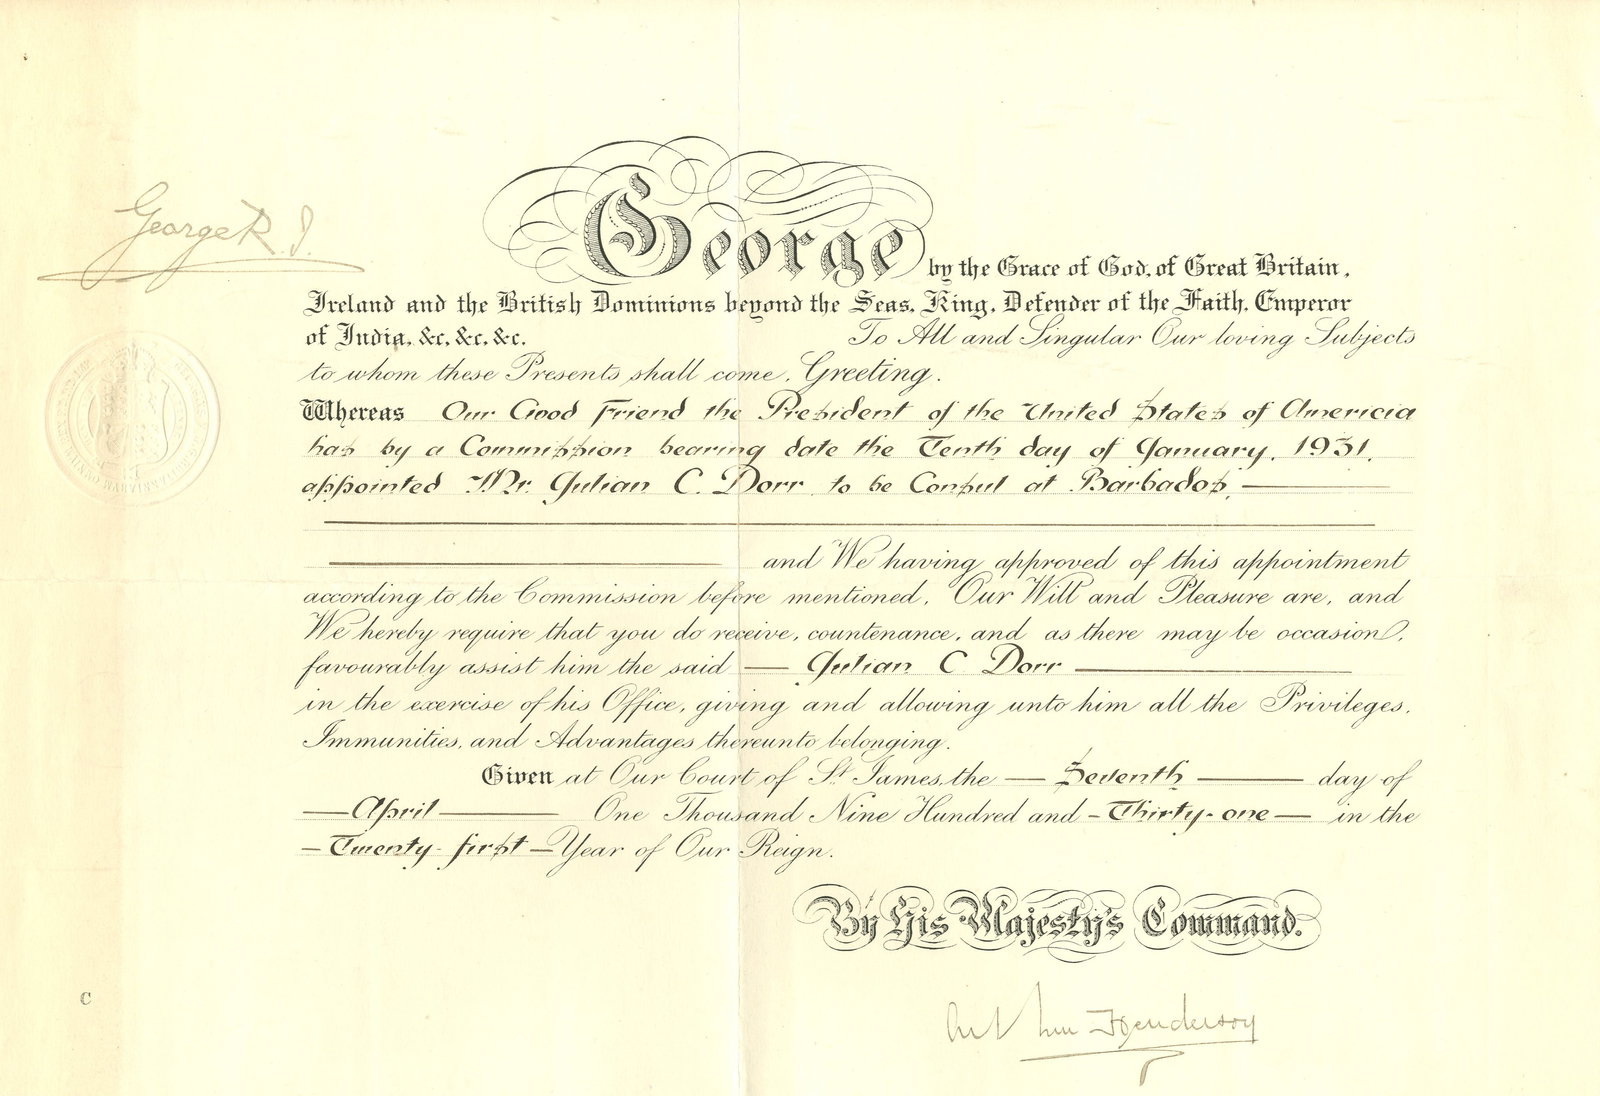 George R.I.
George by the Grace of God, of Great Britain,
Ireland and the British Dominions beyond the Seas, King, Defender of the Faith, Emperor
of India, &c, &c, &c. To All and Singular Our loving Subjects
to whom these Presents shall come, Greeting.
Whereas Our Good Friend the President of the United States of Americia
has by a Commission bearing date the Tenth day of January, 1931,
appointed Mr. Julian C. Dorr, to be Consul at Barbados,
and We having approved of this appointment
according to the Commission before mentioned, Our Will and Pleasure are, and
We hereby require that you do receive, countenance, and as there may be occasion,
favourably assist him the said Julian C Dorr
in the exercise of his Office, giving and allowing unto him all the Privileges,
Immunities, and Advantages thereunto belonging.
Given at Our Court of St. James, the Seventh day of
April One Thousand Nine Hundred and Thirty-one in the
Twenty-first Year of Our Reign.
By His Majesty's Command.
C
Arthur Henderson